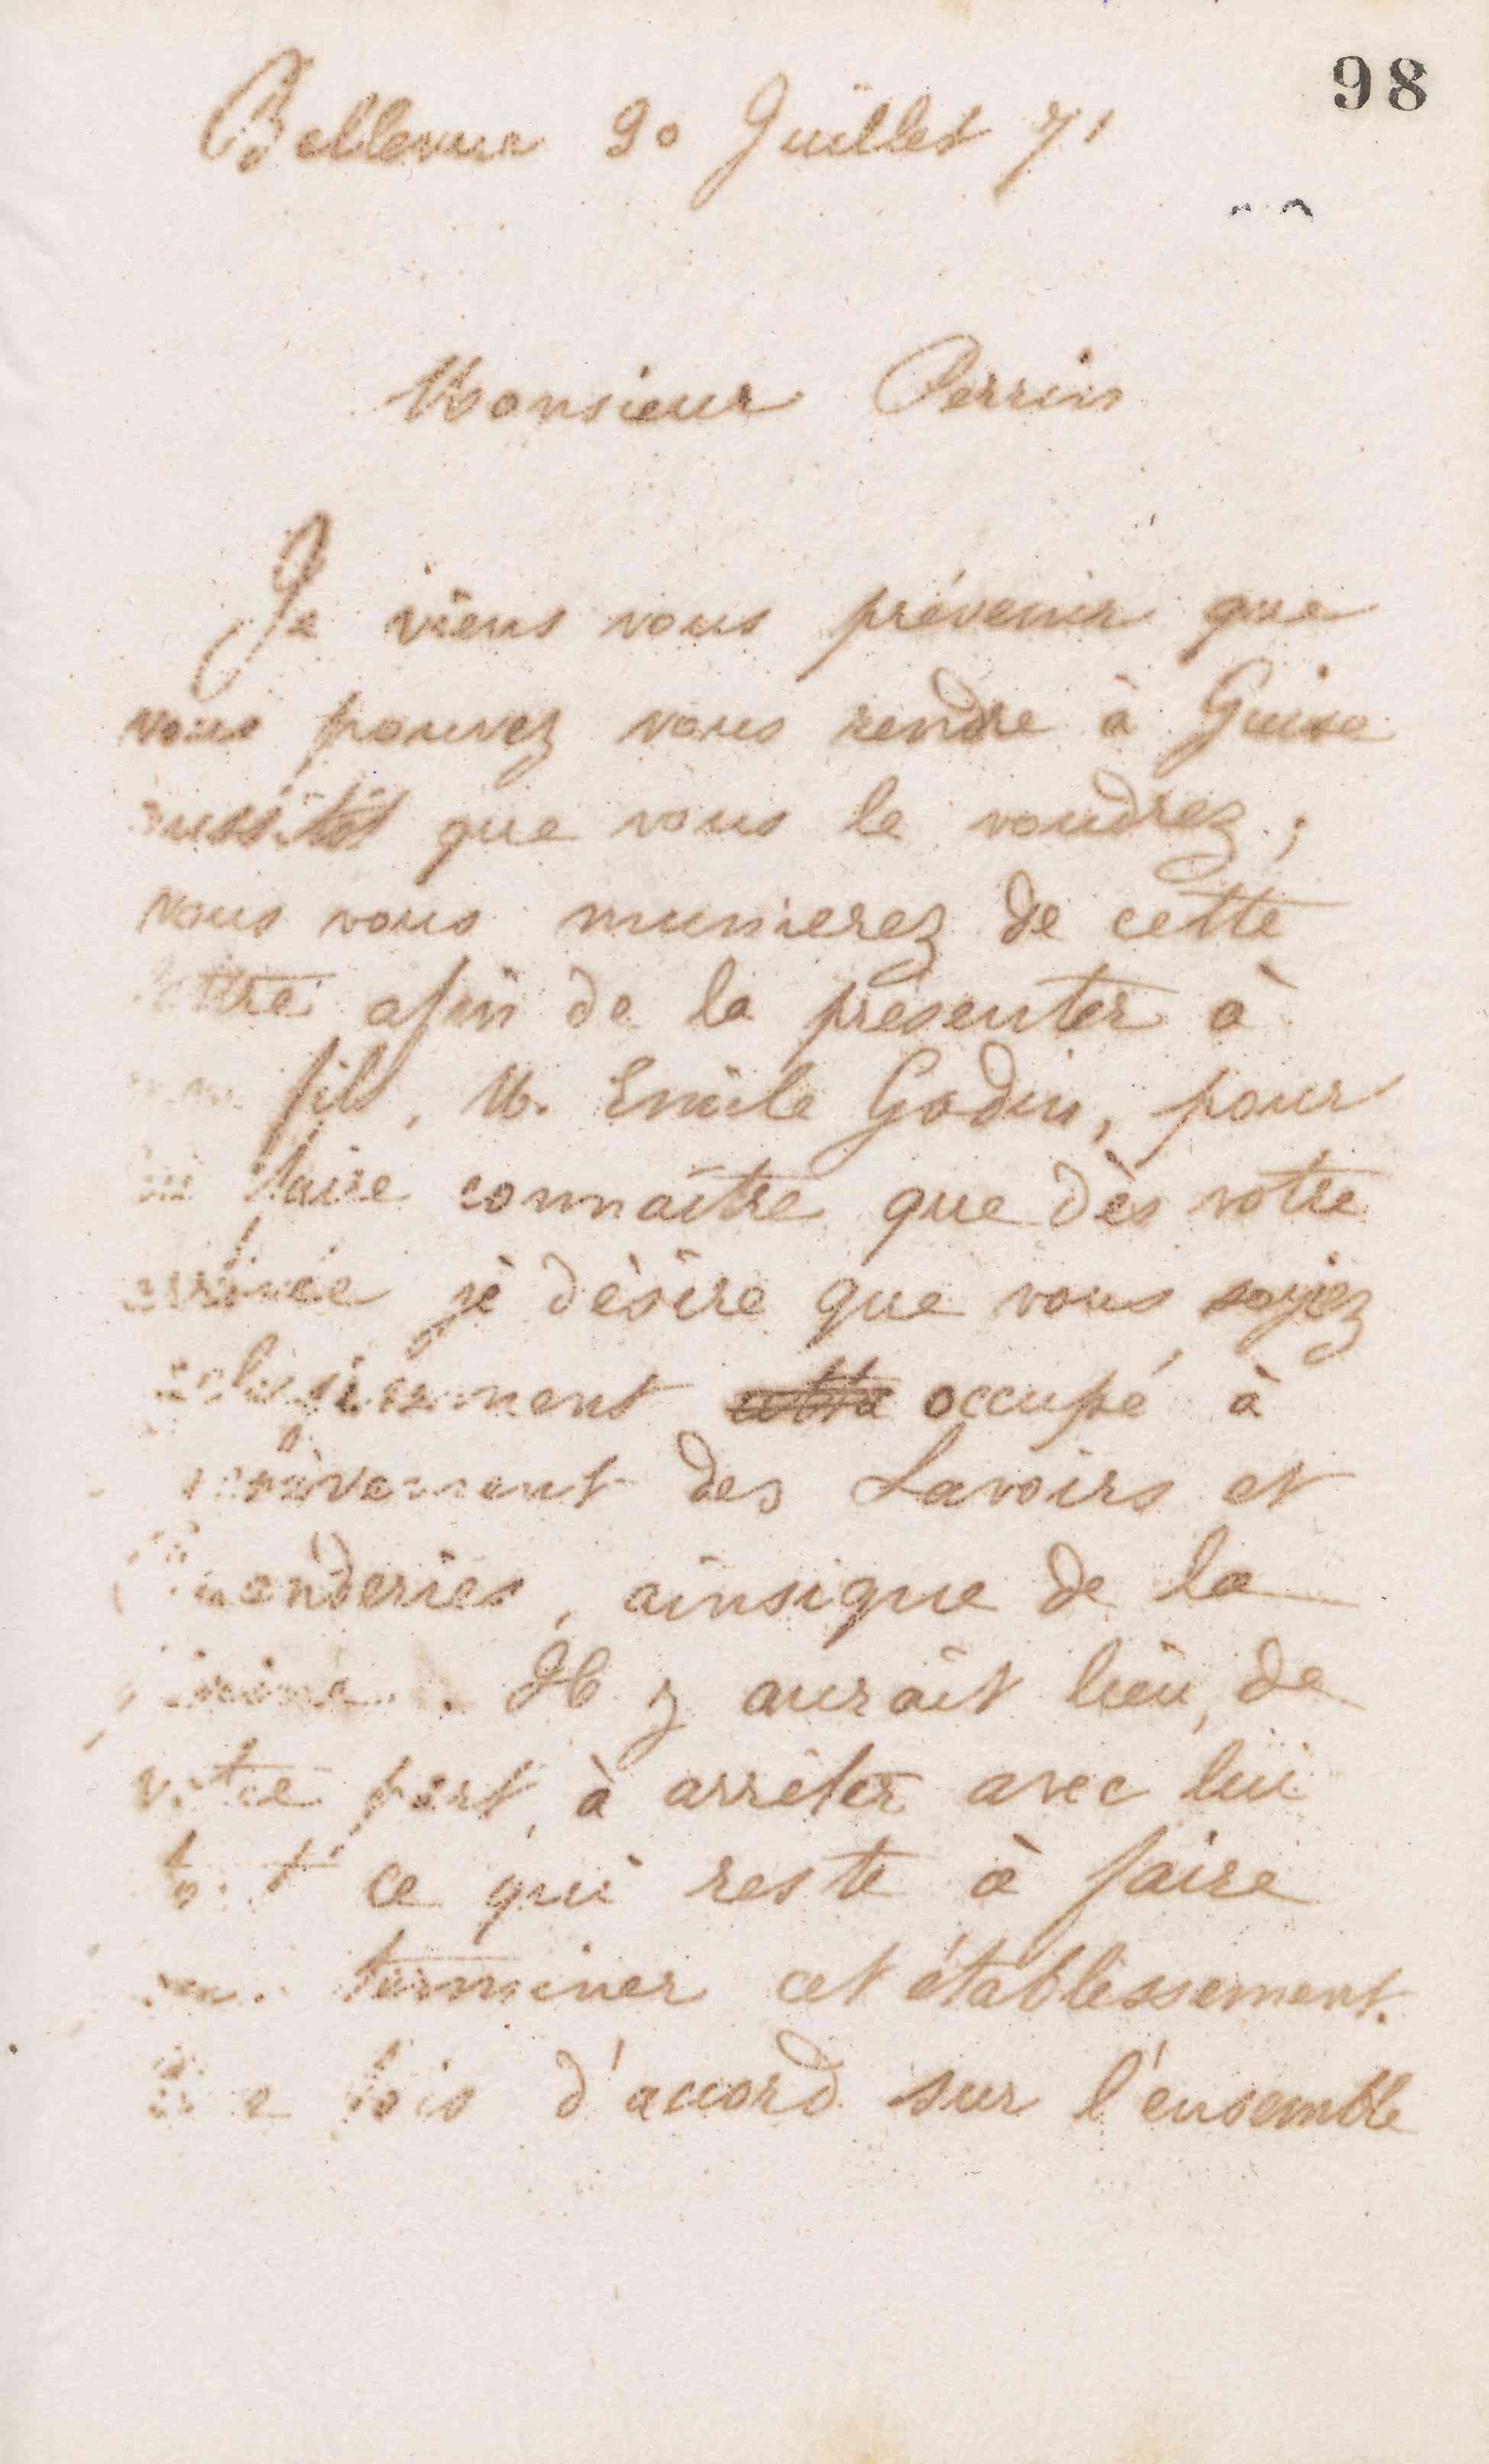 98
Bellevue 20 Juillet 71
Monsieur Perrin
Je viens vous prévenir que
vous pouvez vous rendre à Guise
aussitôt que vous le voudrez ;
vous vous munierez de cette
lettre afin de la présenter à
mon fils, M. Emile Godin, pour
lui faire connaître que dès votre
arrivée je désire que vous soyiez
exclusivement occupé à
des Lavoirs et
Buanderies, ainsique de la
piscine. Il y aurait lieu, de
votre part, à arrêter avec lui
tout ce qui reste à faire
pour terminer cet établissement.
Une fois d'accord sur l'ensemble